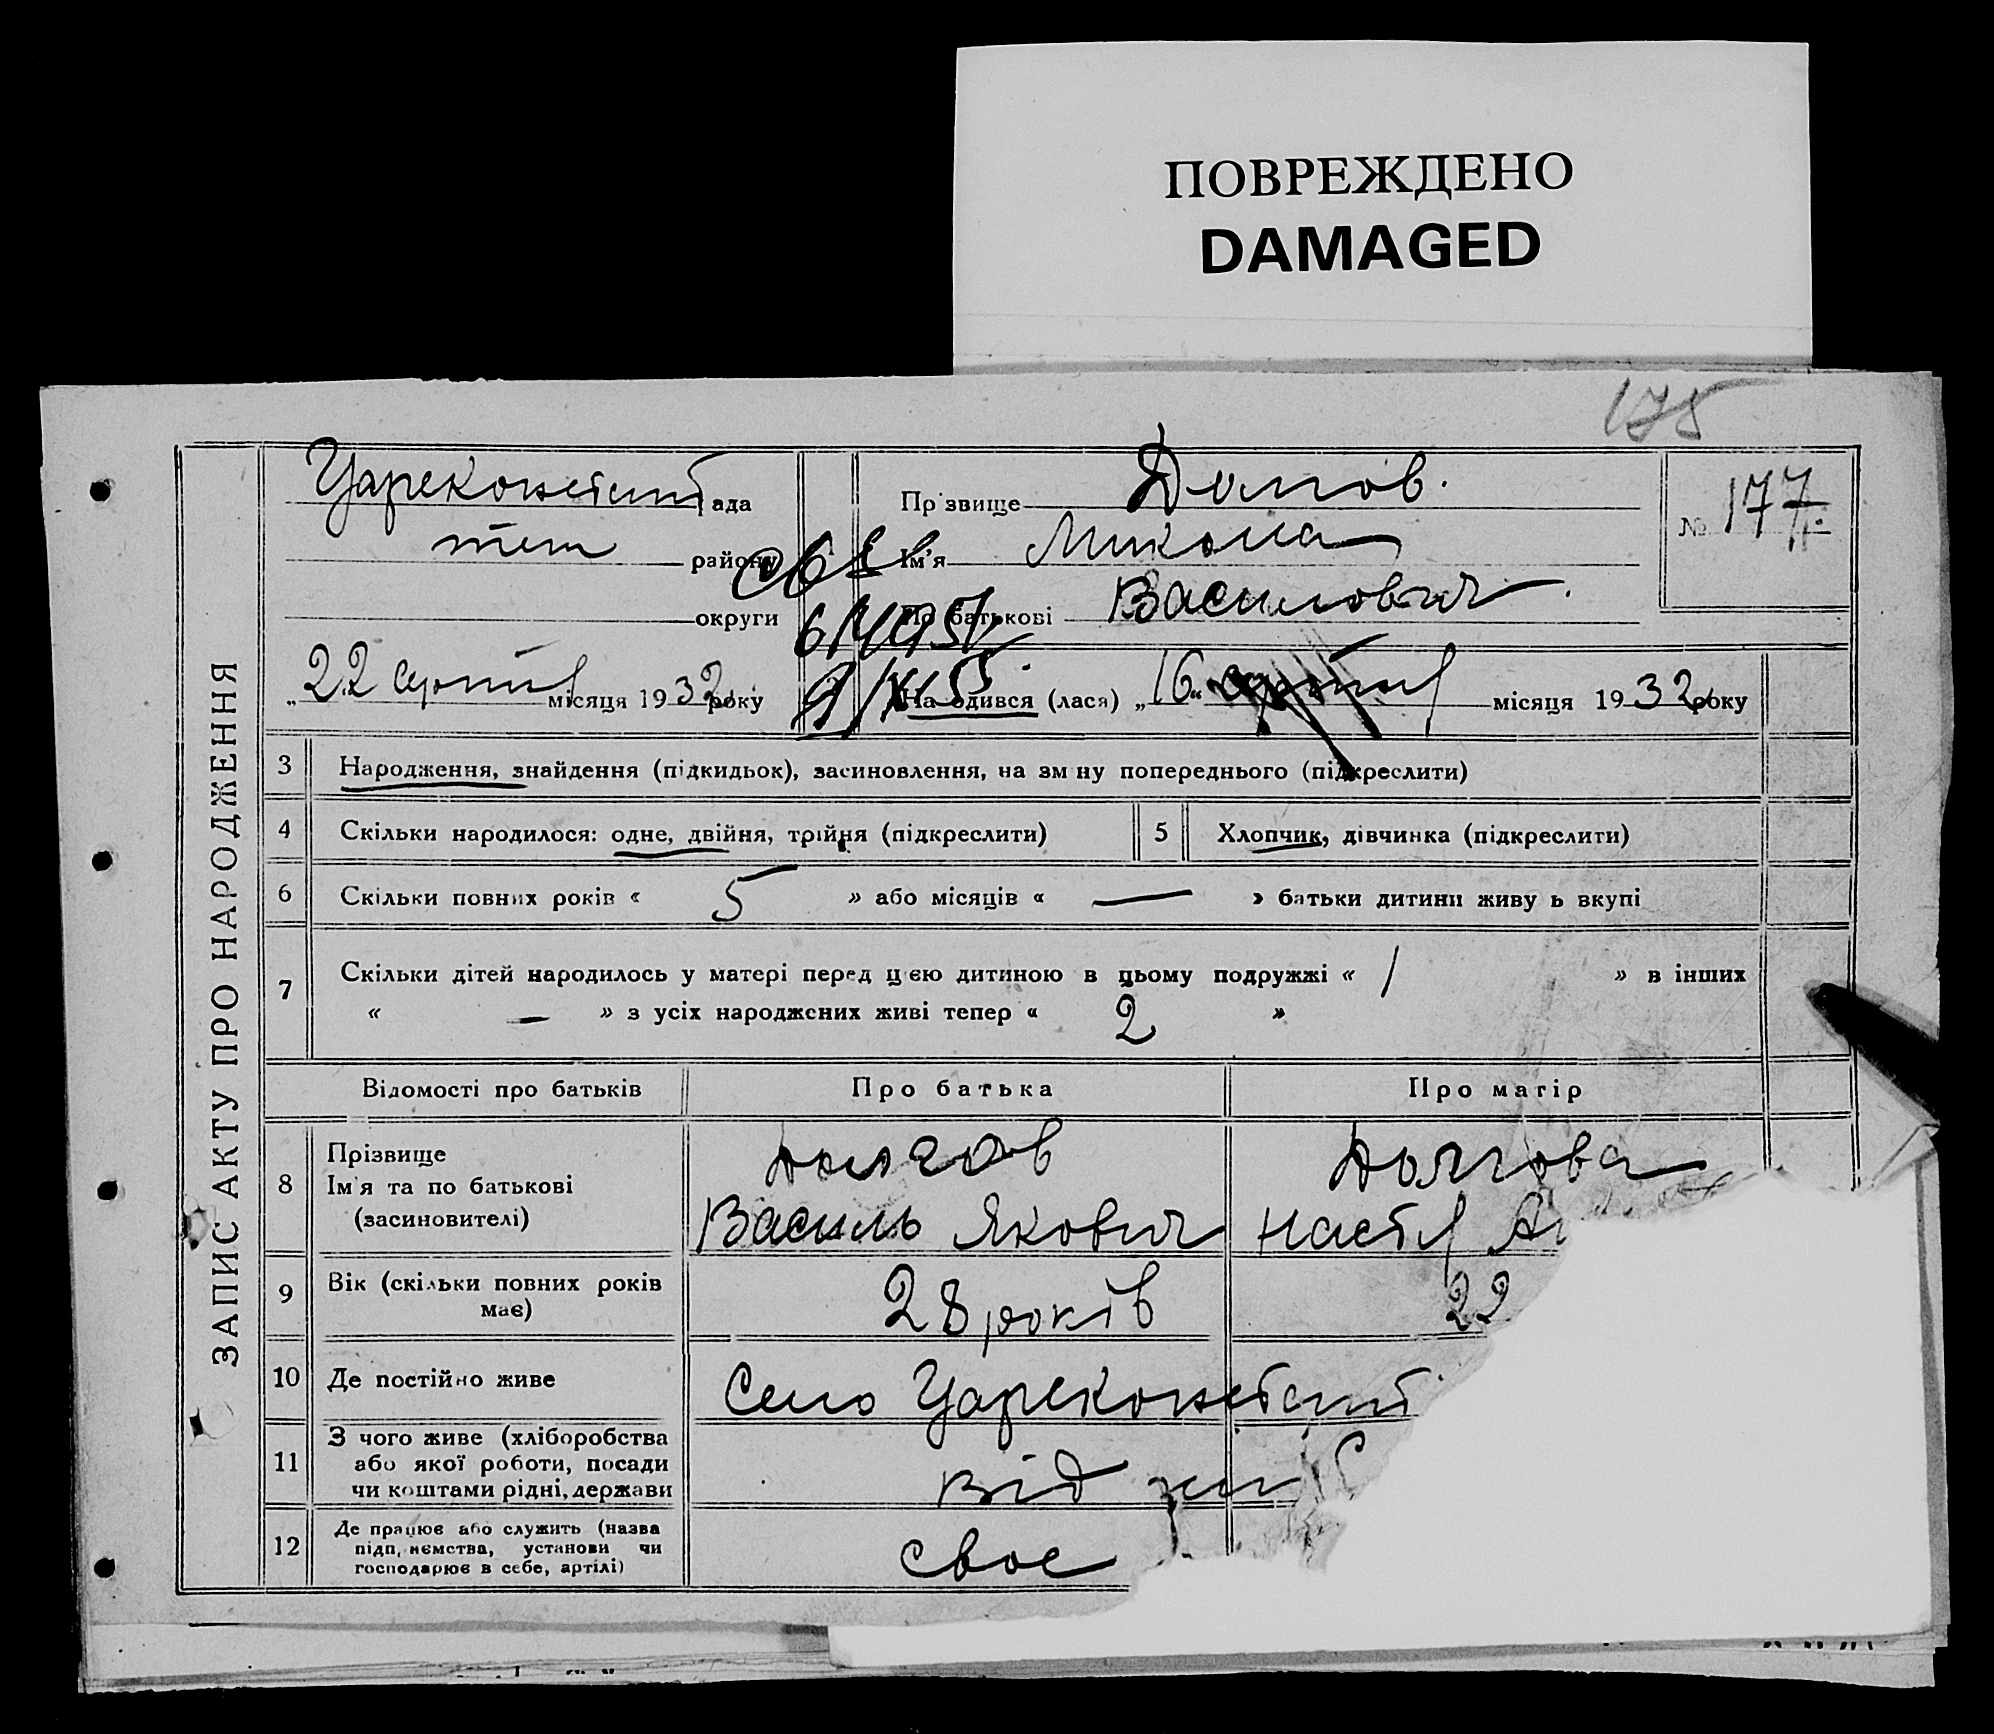 ПОВРЕЖДЕНО
DAMAGED
175
ЗАПИС АКТУ ПРО НАРОДЖЕННЯ
Царекостант рада
тет району
округи
Прізвище Долгов.
Ім'я Микола
По батькові Василович.
№ 177
„22 серпня місяця 1932 року
Народився (лася) „16“ серпня місяця 1932 року
3 Народження, знайдення (підкидьок), засиновлення, на зм ну попереднього (підкреслити)
4 Скільки народилося: одне, двійня, трійня (підкреслити)
5 Хлопчик, дівчинка (підкреслити)
6 Скільки повних років « 5 » або місяців « — » батьки дитини живу ь вкупі
7 Скільки дітей народилось у матері перед цією дитиною в цьому подружжі « 1 » в інших
« — » з усіх народжених живі тепер « 2 »
Відомості про батьків Про батька Про матір
8 Прізвище
Ім'я та по батькові
(засиновителі)
Долгов
Василь Якович
Долгова
Настя
9 Вік (скільки повних років
має)
28 років
22
10 Де постійно живе
Село Царекостант
11 З чого живе (хліборобства
або якої роботи, посади
чи коштами рідні, держави
від
12 Де працює або служить (назва
підп,иємства, установи чи
господарює в себе, артілі)
своє